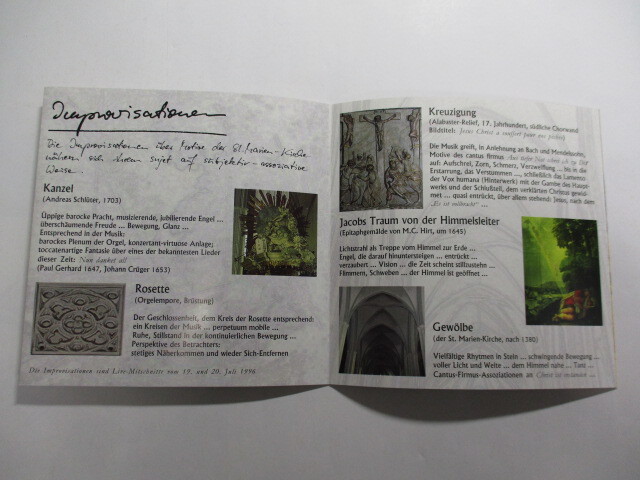 Improvisationen
Die Improvisationen über Motive der St. Marien-Kirche
nähern sich ihrem Sujet auf subjektiv-assoziative
Weise.
Kanzel
(Andreas Schlüter, 1703)
Üppige barocke Pracht, musizierende, jubilierende Engel ...
überschäumende Freude ... Bewegung, Glanz ...
Entsprechend in der Musik:
barockes Plenum der Orgel, konzertant-virtuose Anlage;
toccatenartige Fantasie über eines der bekanntesten Lieder
dieser Zeit: Nun danket all
(Paul Gerhard 1647, Johann Crüger 1653)
Rosette
(Orgelempore, Brüstung)
Der Geschlossenheit, dem Kreis der Rosette entsprechend:
ein Kreisen der Musik ... perpetuum mobile ...
Ruhe, Stillstand in der kontinuierlichen Bewegung ...
Perspektive des Betrachters:
stetiges Näherkommen und wieder Sich-Entfernen
Die Improvisationen sind Live-Mitschnitte vom 19. und 20. Juli 1996
Kreuzigung
(Alabaster-Relief, 17. Jahrhundert, südliche Chorwand)
Bildtitel: Jesus Christ a souffert pour nos péchés
Die Musik greift, in Anlehnung an Bach und Mendelssohn,
Motive des cantus firmus Aus tiefer Not schrei ich zu Dir
auf: Aufschrei, Zorn, Schmerz, Verzweiflung ... bis in die
Erstarrung, das Verstummen ..., schließlich das Lamento
der Vox humana (Hinterwerk) mit der Gambe des Haupt-
werks und der Schlußteil, dem verklärten Christus gewid-
met ... quasi entrückt, über allem stehend: Jesus, nach dem
„Es ist vollbracht“ ...
Jacobs Traum von der Himmelsleiter
(Epitaphgemälde von M.C. Hirt, um 1645)
Lichtstrahl als Treppe vom Himmel zur Erde ...
Engel, die darauf hinuntersteigen ... entrückt ...
verzaubert .. Vision ... die Zeit scheint stillzustehn ...
Flimmern, Schweben ... der Himmel ist geöffnet ...
Gewölbe
(der St. Marien-Kirche, nach 1380)
Vielfältige Rhythmen in Stein ... schwingende Bewegung ...
voller Licht und Weite ... dem Himmel nahe ... Tanz ...
Cantus-Firmus-Assoziationen an Christ ist erstanden ...